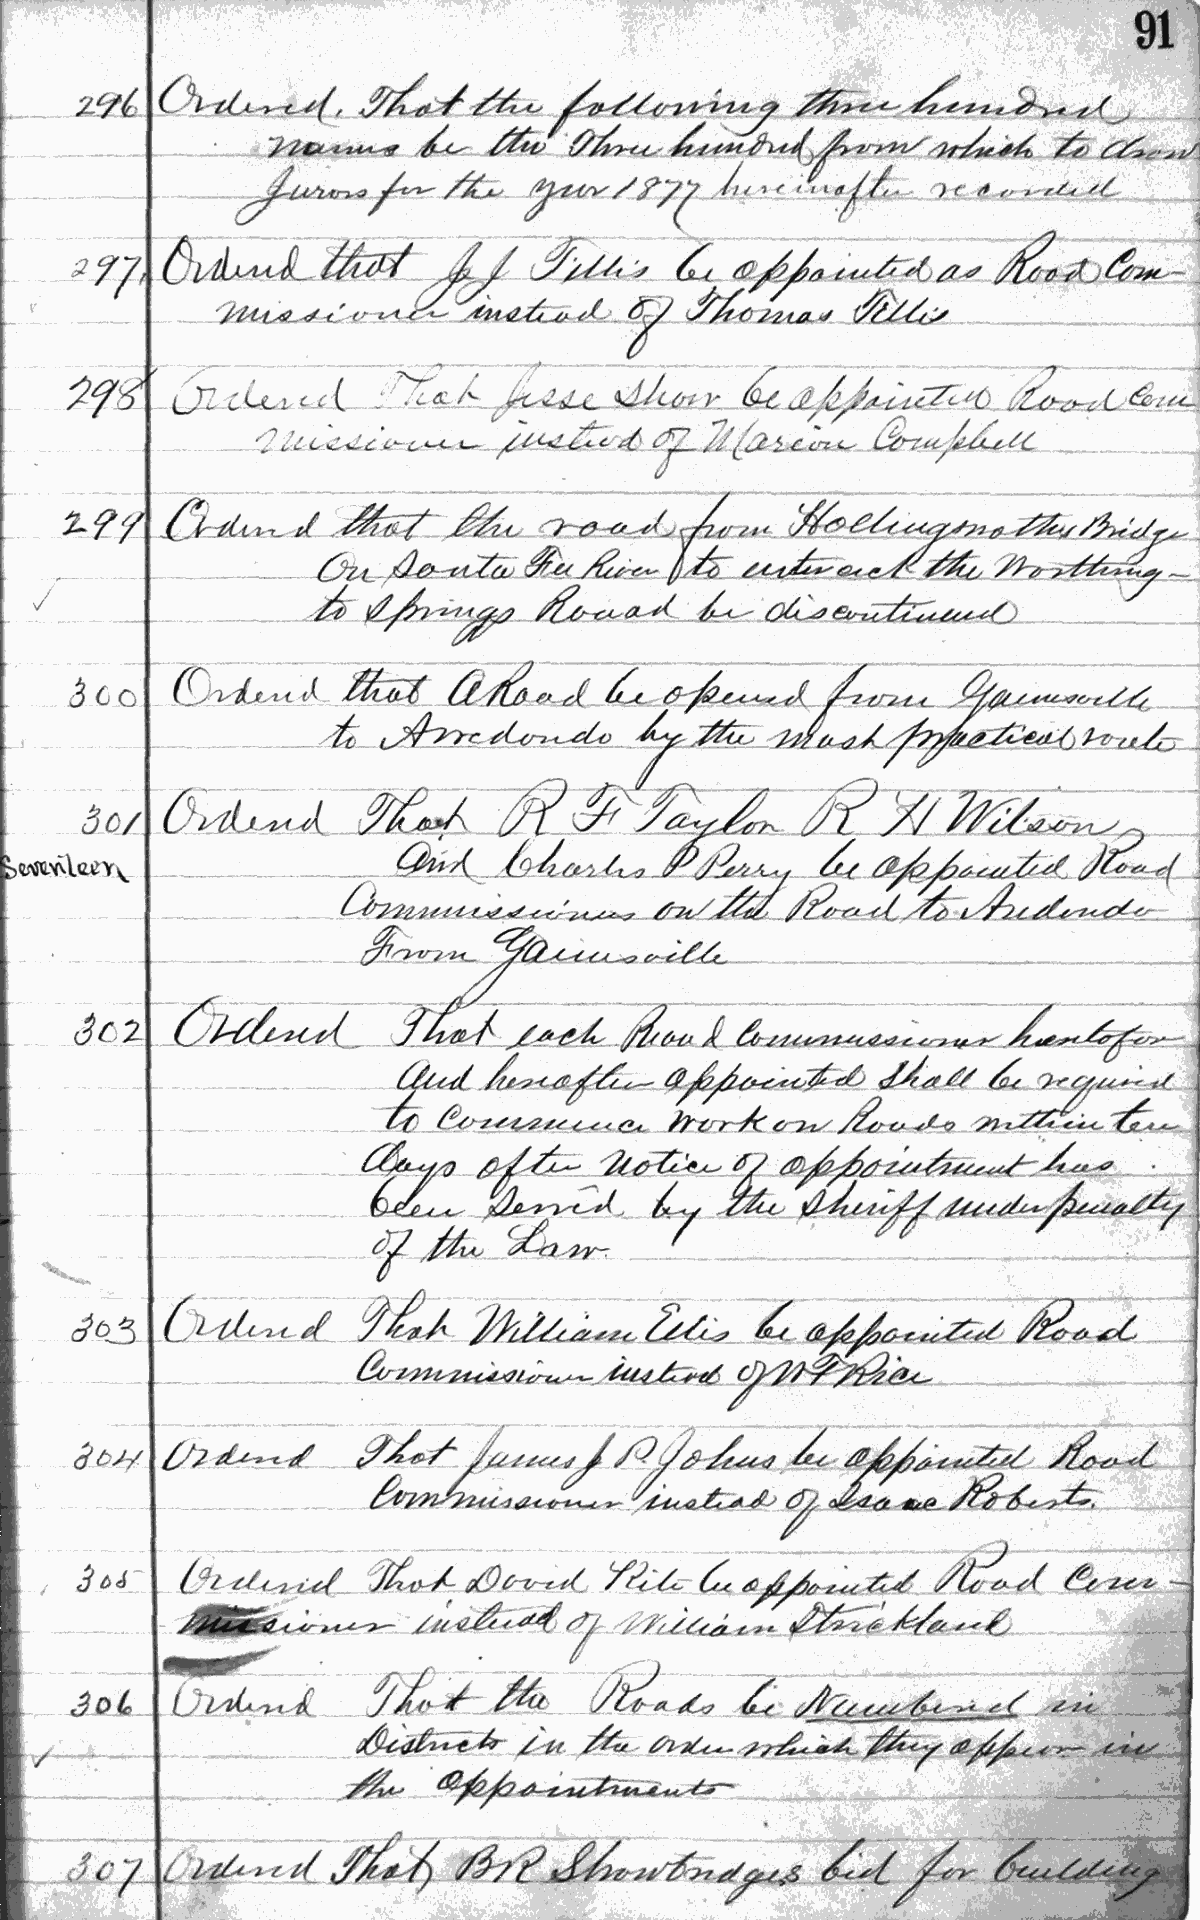 91
296 Ordered. That the following three hundred
names be the Three hundred from which to draw
Jurors for the year 1877 hereinafter recorded
297. Ordend that J J Tillis be appointed as Road Com-
missioner instead of Thomas Tillis
298 Ordered That Jesse Show be appointed Road Com
missioner instead of Marion Campbell
299 Ordend that the road from Hollingsworthes Bridge
On Santa Fee River to intersect the Worthing-
to Springs Rouad be discontinued
300 Ordend that A Road be opened from Gainesville
to Arredondo by the most practical route
301 Ordend That R F Taylor R H Wilson
Seventeen And Charles P Perry be appointed Road
Commissioners on the Road to Aredondo
From Gainesville
302 Ordend That each Rouad Commissioner heretofore
And hereafter appointed shall be required
to Commence work on Roads within ten
days after notice of appointment has
been served by the Sheriff under penalty
of the Law.
303 Ordend That William Ellis be appointed Road
Commissioner instead of W F Rice
304 Ordend That James J P Johns be appointed Road
Commissioner instead of Isaac Roberts.
305 Ordend That David Kite be appointed Road Com-
missioner instead of William Strickland
306 Ordend That the Roads be Numbered in
Districts in the order which they appear in
the appointments
307 Ordend That B R Showbridges bid for building